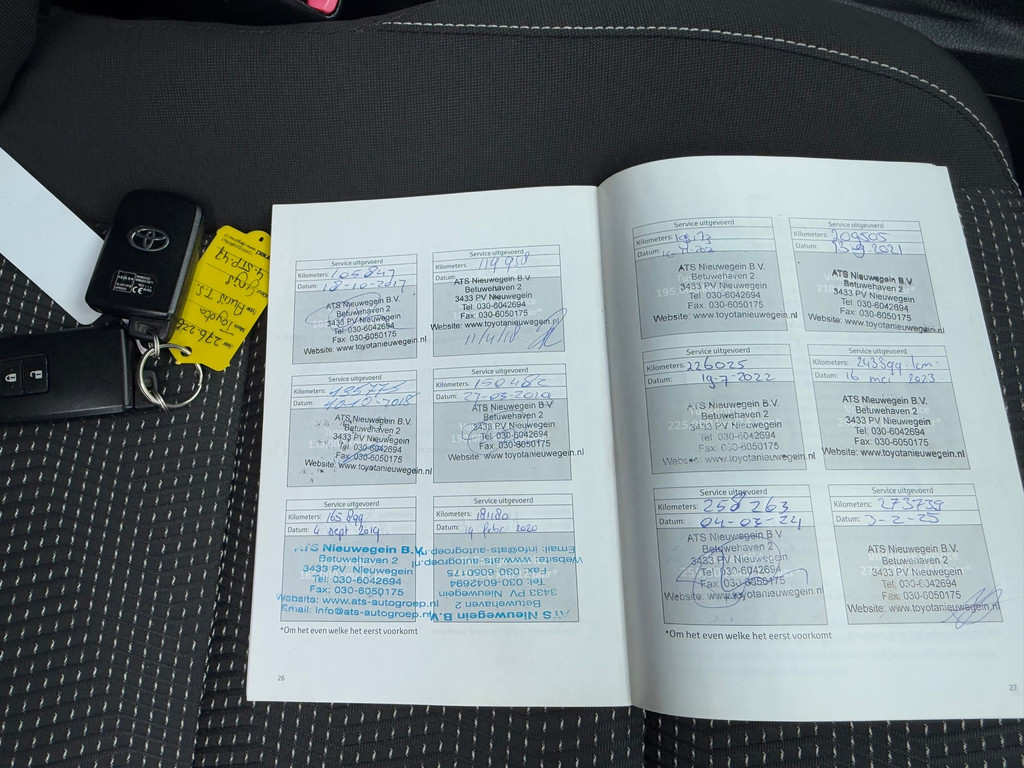 Service uitgevoerd
Kilometers: 105847
Datum: 18-10-2017
ATS Nieuwegein B.V.
Betuwehaven 2
3433 PV Nieuwegein
Tel: 030-6042694
Fax: 030-6050175
Website: www.toyotanieuwegein.nl
Service uitgevoerd
Kilometers: 119958
Datum:
ATS Nieuwegein B.V.
Betuwehaven 2
3433 PV Nieuwegein
Tel: 030-6042694
Fax: 030-6050175
Website: www.toyotanieuwegein.nl
11/4/18
Service uitgevoerd
Kilometers:
Datum:
ATS Nieuwegein B.V.
Betuwehaven 2
3433 PV Nieuwegein
Tel: 030-6042694
Fax: 030-6050175
Website: www.toyotanieuwegein.nl
Service uitgevoerd
Kilometers: 150482
Datum: 27-03-2019
ATS Nieuwegein B.V.
Betuwehaven 2
3433 PV Nieuwegein
Tel: 030-6042694
Fax: 030-6050175
Website: www.toyotanieuwegein.nl
Service uitgevoerd
Kilometers: 165899
Datum: 4 sept 2019
ATS Nieuwegein B.V.
Betuwehaven 2
3433 PV Nieuwegein
Tel: 030-6042694
Fax: 030-6050175
Website: www.ats-autogroep.nl
Email: info@ats-autogroep.nl
Service uitgevoerd
Kilometers: 181180
Datum: 14 febr 2020
ATS Nieuwegein B.V.
Betuwehaven 2
3433 PV Nieuwegein
Tel: 030-6042694
Fax: 030-6050175
Website: www.ats-autogroep.nl
Email: info@ats-autogroep.nl
*Om het even welke het eerst voorkomt
26
Service uitgevoerd
Kilometers:
Datum:
ATS Nieuwegein B.V.
Betuwehaven 2
3433 PV Nieuwegein
Tel: 030-6042694
Fax: 030-6050175
Website: www.toyotanieuwegein.nl
Service uitgevoerd
Kilometers: 209505
Datum: 13-9-2021
ATS Nieuwegein B.V.
Betuwehaven 2
3433 PV Nieuwegein
Tel: 030-6042694
Fax: 030-6050175
Website: www.toyotanieuwegein.nl
Service uitgevoerd
Kilometers: 226025
Datum: 19-7-2022
ATS Nieuwegein B.V.
Betuwehaven 2
3433 PV Nieuwegein
Tel: 030-6042694
Fax: 030-6050175
Website: www.toyotanieuwegein.nl
Service uitgevoerd
Kilometers: 243899 km
Datum: 16 mei 2023
ATS Nieuwegein B.V.
Betuwehaven 2
3433 PV Nieuwegein
Tel: 030-6042694
Fax: 030-6050175
Website: www.toyotanieuwegein.nl
Service uitgevoerd
Kilometers: 258263
Datum: 04-03-24
ATS Nieuwegein B.V.
Betuwehaven 2
3433 PV Nieuwegein
Tel: 030-6042694
Fax: 030-6050175
Website: www.toyotanieuwegein.nl
Service uitgevoerd
Kilometers: 273739
Datum: 3-2-25
ATS Nieuwegein B.V.
Betuwehaven 2
3433 PV Nieuwegein
Tel: 030-6042694
Fax: 030-6050175
Website: www.toyotanieuwegein.nl
*Om het even welke het eerst voorkomt
27
Toyota
Auris T.S.
grijs